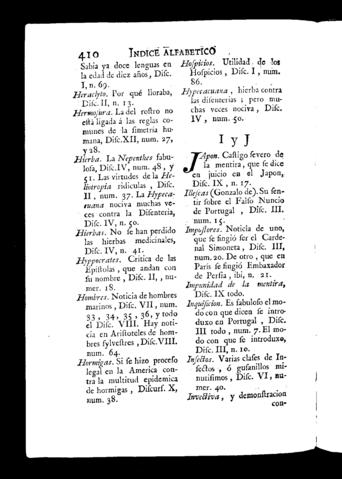 410 INDICE ALFABETICO
Sabia ya doce lenguas en
la edad de diez años, Disc.
I, n. 69.
Heraclyto. Por qué lloraba,
Disc. II, n. 13.
Hermosura. La del rostro no
está ligada á las reglas co-
munes de la simetria hu-
mana, Disc. XII, num. 27,
y 28.
Hierba. La Nepenthes fabu-
losa, Disc. IV, num. 48, y
51. Las virtudes de la He-
liotropia ridiculas, Disc.
II, num. 37. La Hypeca-
cuana nociva muchas ve-
ces contra la Disenteria,
Disc. IV, n. 50.
Hierbas. No se han perdido
las hierbas medicinales,
Disc. IV, n. 41.
Hyppocrates. Critica de las
Epistolas, que andan con
su nombre, Disc. II, nu-
mer. 18.
Hombres. Noticia de hombres
marinos, Disc. VII, num.
33, 34, 35, 36, y todo
el Disc. VIII. Hay noti-
cia en Aristoteles de hom-
bres sylvestres, Disc. VIII.
num. 64.
Hormigas. Si se hizo proceso
legal en la America con-
tra la multitud epidemica
de hormigas, Discurs. X,
num. 38.
Hospicios. Utilidad de los
Hospicios, Disc. I, num.
86.
Hypecacuana, hierba contra
las disenterias; pero mu-
chas veces nociva, Disc.
IV, num. 50.
I y J
JApon. Castigo severo de
la mentira, que se dice
en juicio en el Japon,
Disc. IX, n. 17.
Illescas (Gonzalo de). Su sen-
tir sobre el Falso Nuncio
de Portugal, Disc. III.
num. 15.
Impostores. Noticia de uno,
que se fingió ser el Carde-
nal Simoneta, Disc. III,
num. 20. De otro, que en
Paris se fingió Embaxador
de Persia, ibi, n. 21.
Impunidad de la mentira,
Disc. IX todo.
Inquisicion. Es fabuloso el mo-
do con que dicen se intro-
duxo en Portugal, Disc.
III todo, num. 7. El mo-
do con que se introduxo,
Disc. III, n. 10.
Insectos. Varias clases de In-
sectos, ó gusanillos mi-
nutisimos, Disc. VI, nu-
mer. 40.
Invectiva, y demonstracion
con-